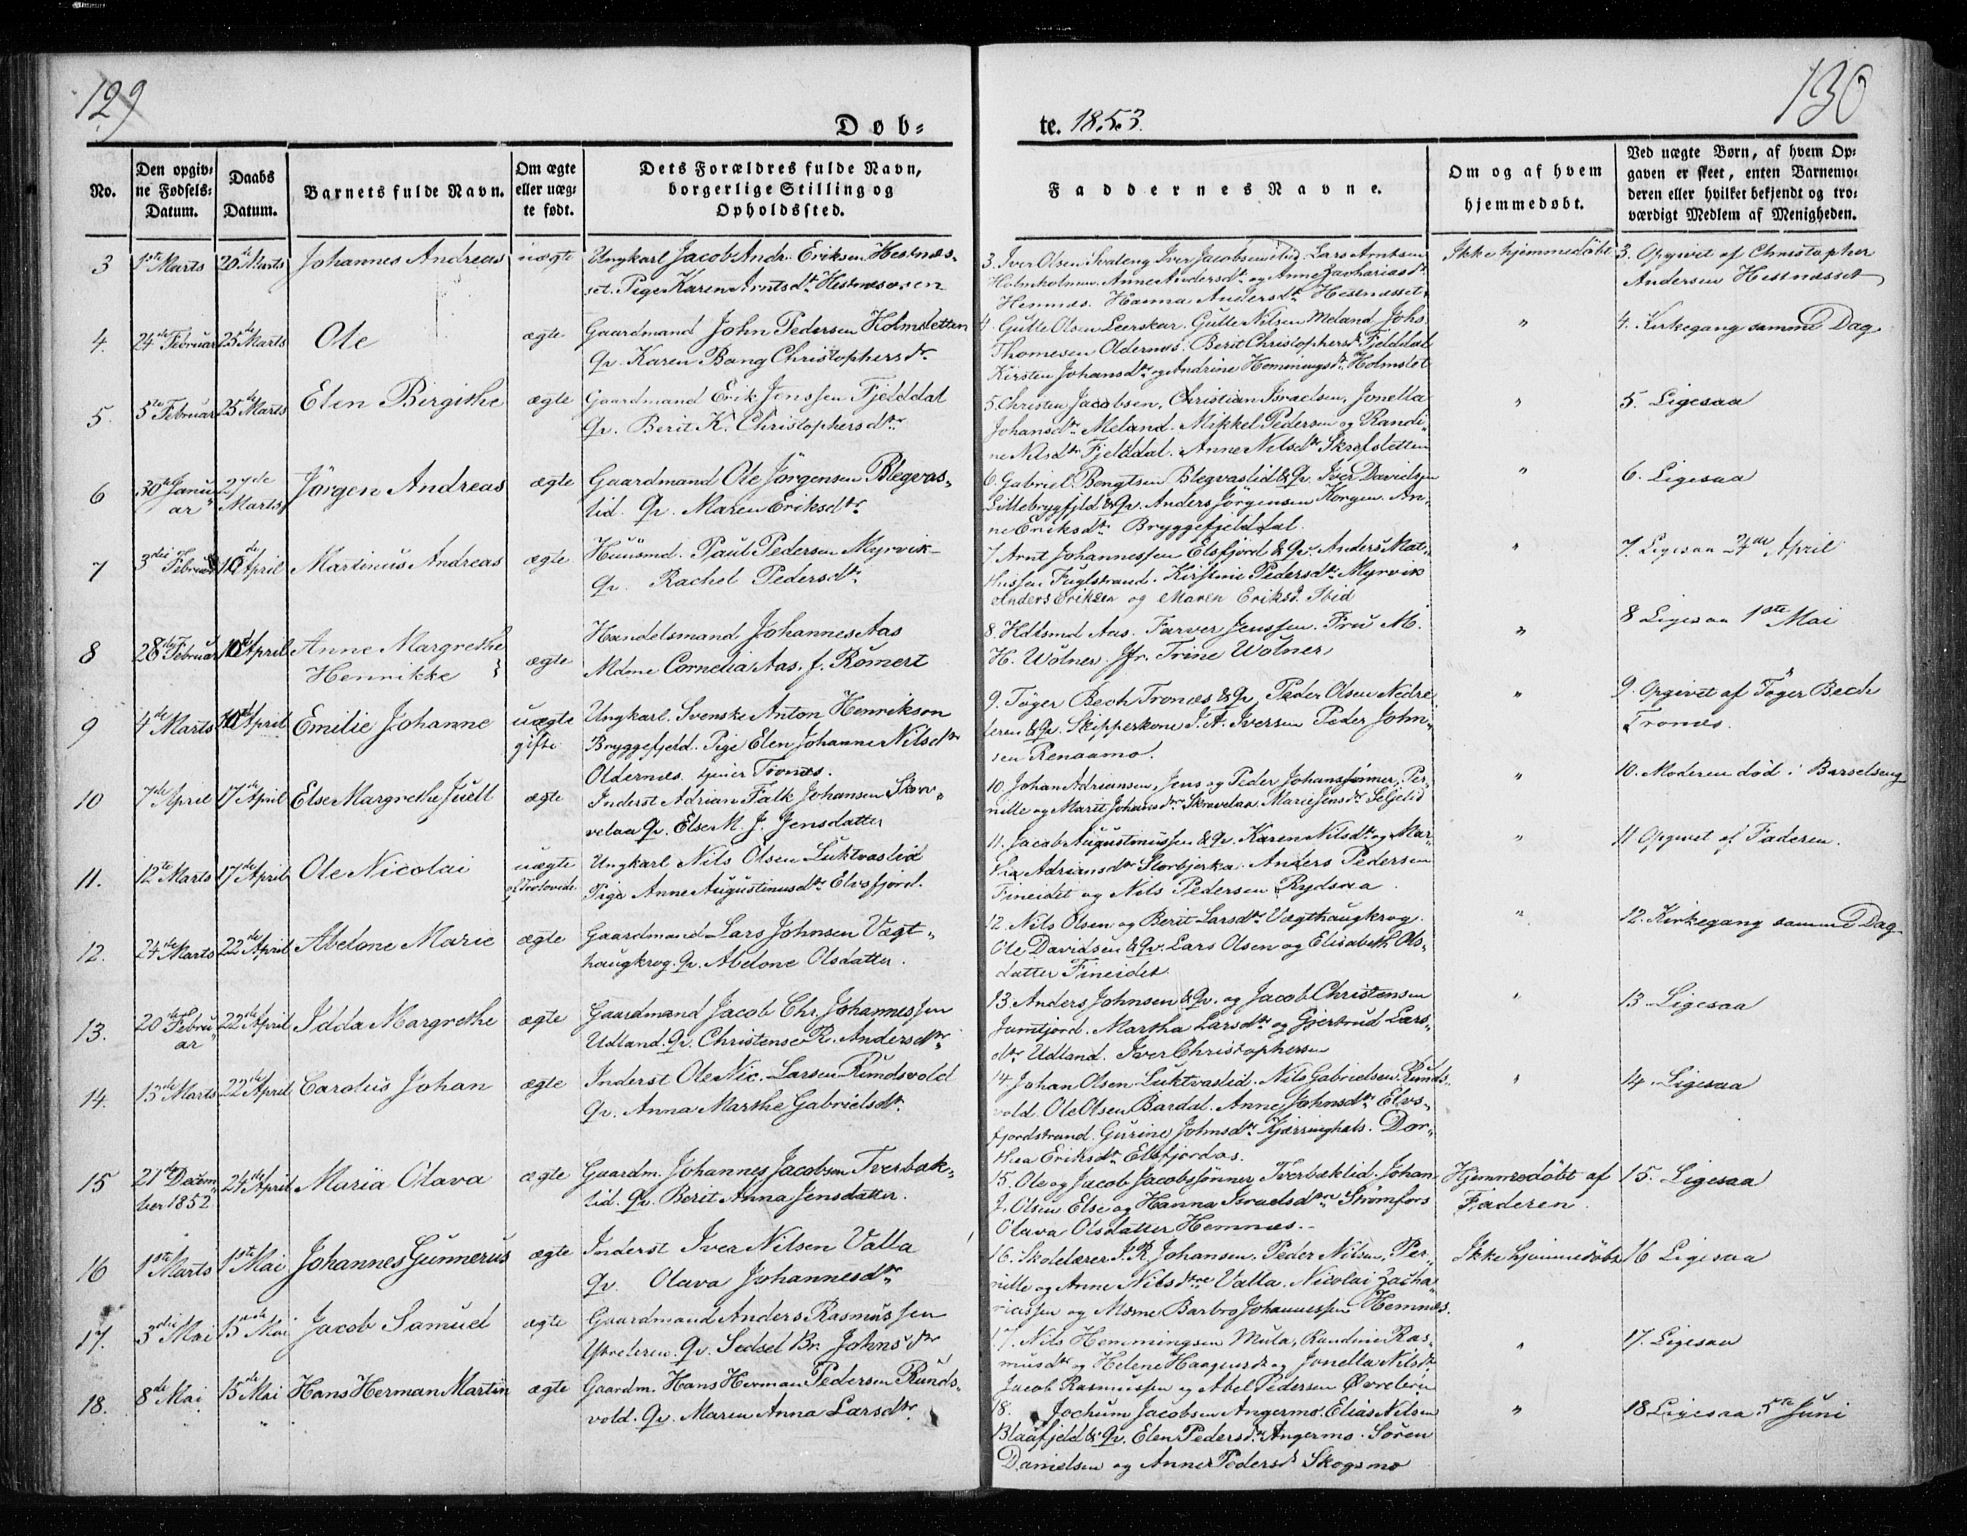 129
130
Døb-
te. 1853.
No.
Den opgiv-
ne Fødsels-
Datum.
Daabs
Datum.
Barnets fulde Navn.
Om ægte
eller uæg-
te født.
Dets Forældres fulde Navn,
borgerlige Stilling og
Opholdssted.
Faddernes Navne.
Om og af hvem
hjemmedøbt.
Ved uægte Børn, af hvem Op-
gaven er skeet, enten Barnemo-
deren eller hvilket bekjendt og tro-
værdigt Medlem af Menigheden.
3
1ste Marts
20de Marts
Johannes Andreas
uægte
Ungkarl Jacob Andr. Eriksen Hestnæs-
set. Pige Karen Arntsdtr Hestnæsosen
3. Iver Olsen Svaleng Iver Jacobsen ibid. Lars Arntsen
Holmholmen Anne Andersdtr og Anne Zachariasdtr
Hemnæs. Hanna Andersdtr Hestnæsset.
Ikke hjemmedøbt
3. Opgivet af Christopher
Andersen Hestnæsset
4.
24de Februar
25de Marts
Ole
ægte
Gaardmand John Pedersen Holmsletten
Qv. Karen Bang Christophersdtr
4. Gutte Olsen Leerskar. Gutte Nilsen Meland. Johs.
Thomesen Oldernæs. Berit Christophersdtr Fjelddal
Kirsten Johansdtr og Andrine Hemmingsdtr Holmslet
"
4. Kirkegang samme Dag
5.
5te Februar
25de Marts
Elen Bergithe
ægte
Gaardmand Erik Jenssen Fjelddal
Qv. Berit K. Christophersdtr
5. Christen Jacobsen, Christian Israelsen, Jonella
Johansdtr Meland. Mikkel Pedersen og Randi-
ne Nilsdtr Fjelddal. Anne Nilsdtr Skrofstetten
"
5. Ligesaa
6
30te Janu-
ar
27de
Marts
Jörgen Andreas
ægte
Gaardmand Ole Jörgensen Blegvas-
lid. Qv. Maren Eriksdtr
6. Gabriel Bengtsen Blegvaslid & Qv. Iver Davidsen
Lillebrygfjeld & Qv. Anders Jörgensen Korgen. An-
ne Eriksdtr Bryggefjelddal.
"
6. Ligesaa
7
3die Februar
10de April
Martinus Andreas
ægte
Huusmd. Paul Pedersen Myrvik
Qv. Rachel Pedersdtr
7 Arnt Johannessen Elsfjord & Qv. Anders Mat-
hissen Fuglstrand. Kirstine Pedersdtr Myrvik
Anders Eriksen og Maren Eriksd. Ibid
"
7. Ligesaa 24de April
8
28de Februar
10de April
Anne Margrethe
Henrikke
ægte
Handelsmand Johannes Aas
Mdme Cornelia Aas, f. Römert
8. Hdlsmd Aas. Farver Jenssen. Fru M.
H. Wolner. Jfr. Trine Wolner
"
8 Ligesaa 1ste Mai
9
4de Marts
10de April
Emilie Johanne
uægte
gifte
Ungkarl. Svenske Anton Henrikson
Bryggefjeld. Pige Elen Johanne Nilsdtr
Oldernæs. tjener Tronæs.
9. Töger Bech Tronæs & Qv. Peder Olsen Nedre
leren & Qv. Skipperkone J. A. Iversen Peder John-
sen Renaamo.
"
9. Opgivet af Töger Bech
Tronæs.
10
7de April
17de April
Else Margrethe Juell
ægte
Inderst Adrian Falk Johansen Skra-
velaa Qv. Else M. J. Jensdatter
10. Johan Adriansen, Jens og Peder Johanssönner, Per-
nille og Marit Johansdtre Skravelaa Marie Jensdtr Seljelid
"
10. Moderen död i Barselseng
11.
12te Marts
17de April
Ole Nicolai
uægte
Trolovede
Ungkarl Nils Olsen Luktvaslid
Pige Anne Augustinusdtr Elvsfjord.
11. Jacob Augustinussen & Qv. Karen Nilsdtr og Mar-
tha Adriansdtr Storbjerka. Anders Pedersen
Fineidet og Nils Pedersen Rydsaa.
"
11 Opgivet af Faderen.
12.
24de Marts
22de April
Abelone Marie
ægte
Gaardmand Lars Johnsen Vægt-
haugkrog. Qv. Abelone Olsdatter.
12. Nils Olsen og Berit Larsdtr Vægthaugkrog.
Ole Davidsen & Qv. Lars Olsen og Elisabeth Ols-
datter Fineidet
"
12. Kirkegang samme Dag
13.
20de Febru-
ar
22de April
Idda Margrethe
ægte
Gaardmand Jacob Chr. Johannessen
Udland. Qv. Christense R. Andersdtr
13. Anders Johnsen & Qv. og Jacob Christensen
Jamtjord. Martha Larsdtr og Gjertrud Lars-
dtr Udland. Iver Christophersen
"
13 Ligesaa
14.
13de Marts
22de April
Carolus Johan
ægte
Inderst Ole Nic. Larsen Rundsvold
Qv. Anna Marthe Gabrielsdtr.
14 Johan Olsen Luktvaslid. Nils Gabrielsen Runds-
vold. Ole Olsen Bardal. Anne Johnsdtr Elvs-
fjordstrand. Gurine Johnsdtr Kjærringhals. Dor-
thea Eriksdtr Elsfjordas.
"
14. Ligesaa
15
21de Decem-
ber 1852
24de April
Maria Olava
ægte
Gaardm. Johannes Jacobsen Tverbæk-
lid. Qv. Berit Anna Jensdatter.
15. Ole og Jacob Jacobssönner Tverbæklid. Johan
J. Olsen Else og Hanna Israelsdtre Strømfors
Olava Olsdatter Hemnæs.
Hjemmedöbt af
Faderen.
15. Ligesaa
16
1ste Marts
1ste Mai
Johannes Gunnerus
ægte
Inderst Iver Nilsen Valla
Qv. Olava Johannesdtr
16. Skolelærer J. R. Johansen. Peder Nilsen, Per-
nille og Anne Nilsdtre Valla. Nicolai Zacha-
riassen og Mdme Barbro Johannessen Hemnæs.
Ikke hjemmedöbt
16 Ligesaa
17.
3die Mai
15de Mai
Jacob Samuel
ægte
Gaardmand Anders Rasmussen
Øvreleren. Qv. Sedsel Br. Johnsdtr
17. Nils Hemmingsen Mula, Randine Ras-
musdtr og Helene Haagensd. og Jonella Nilsdtr
Jacob Rasmussen og Abel Pedersen Øvreleren
"
17. Ligesaa
18.
8de Mai
15de Mai
Hans Herman Martin
ægte
Gaardm. Hans Herman Pedersen Runds-
vold. Qv. Maren Anna Larsdtr.
18. Jochum Jacobsen Angermo. Elias Nilsen
Blaafjeld & Qv. Elen Pedersdtr Angermo. Sören
Danielsen og Anne Pedersd. Skogsmo
"
18 Ligesaa 5te Juni